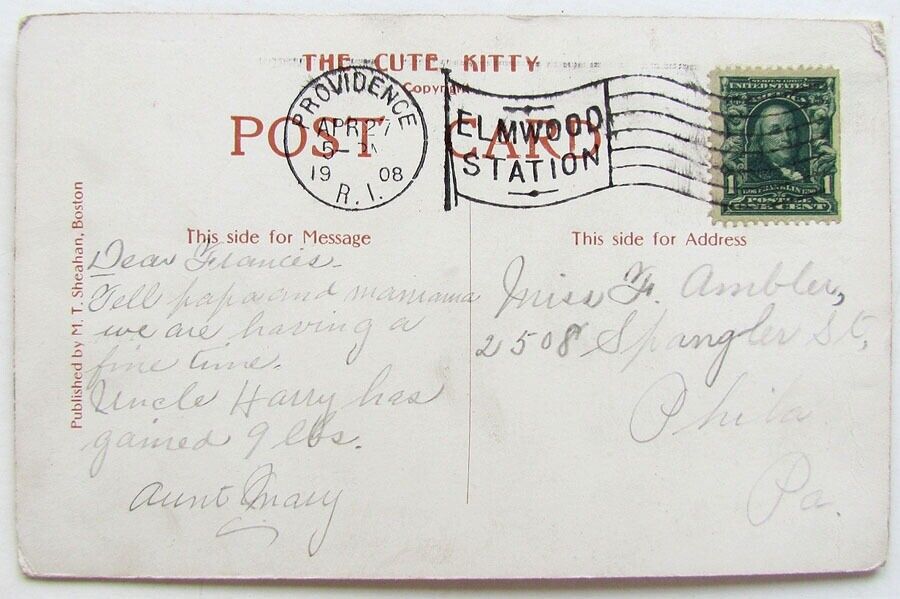 THE CUTE KITTY
Copyright
POST CARD
PROVIDENCE
APR 27
5- PM
19 08
R.I.
ELMWOOD
STATION
SERIES 1902
UNITED STATES OF AMERICA
1 1
FRANKLIN
POSTAGE
ONE CENT
Published by M. T. Sheahan, Boston
This side for Message
Dear Frances-
Tell papa and mamama
we are having a
fine time.
Uncle Harry has
gained 9 lbs.
Aunt Mary
This side for Address
Miss F. Ambler,
2508 Spangler St,
Phila
Pa.